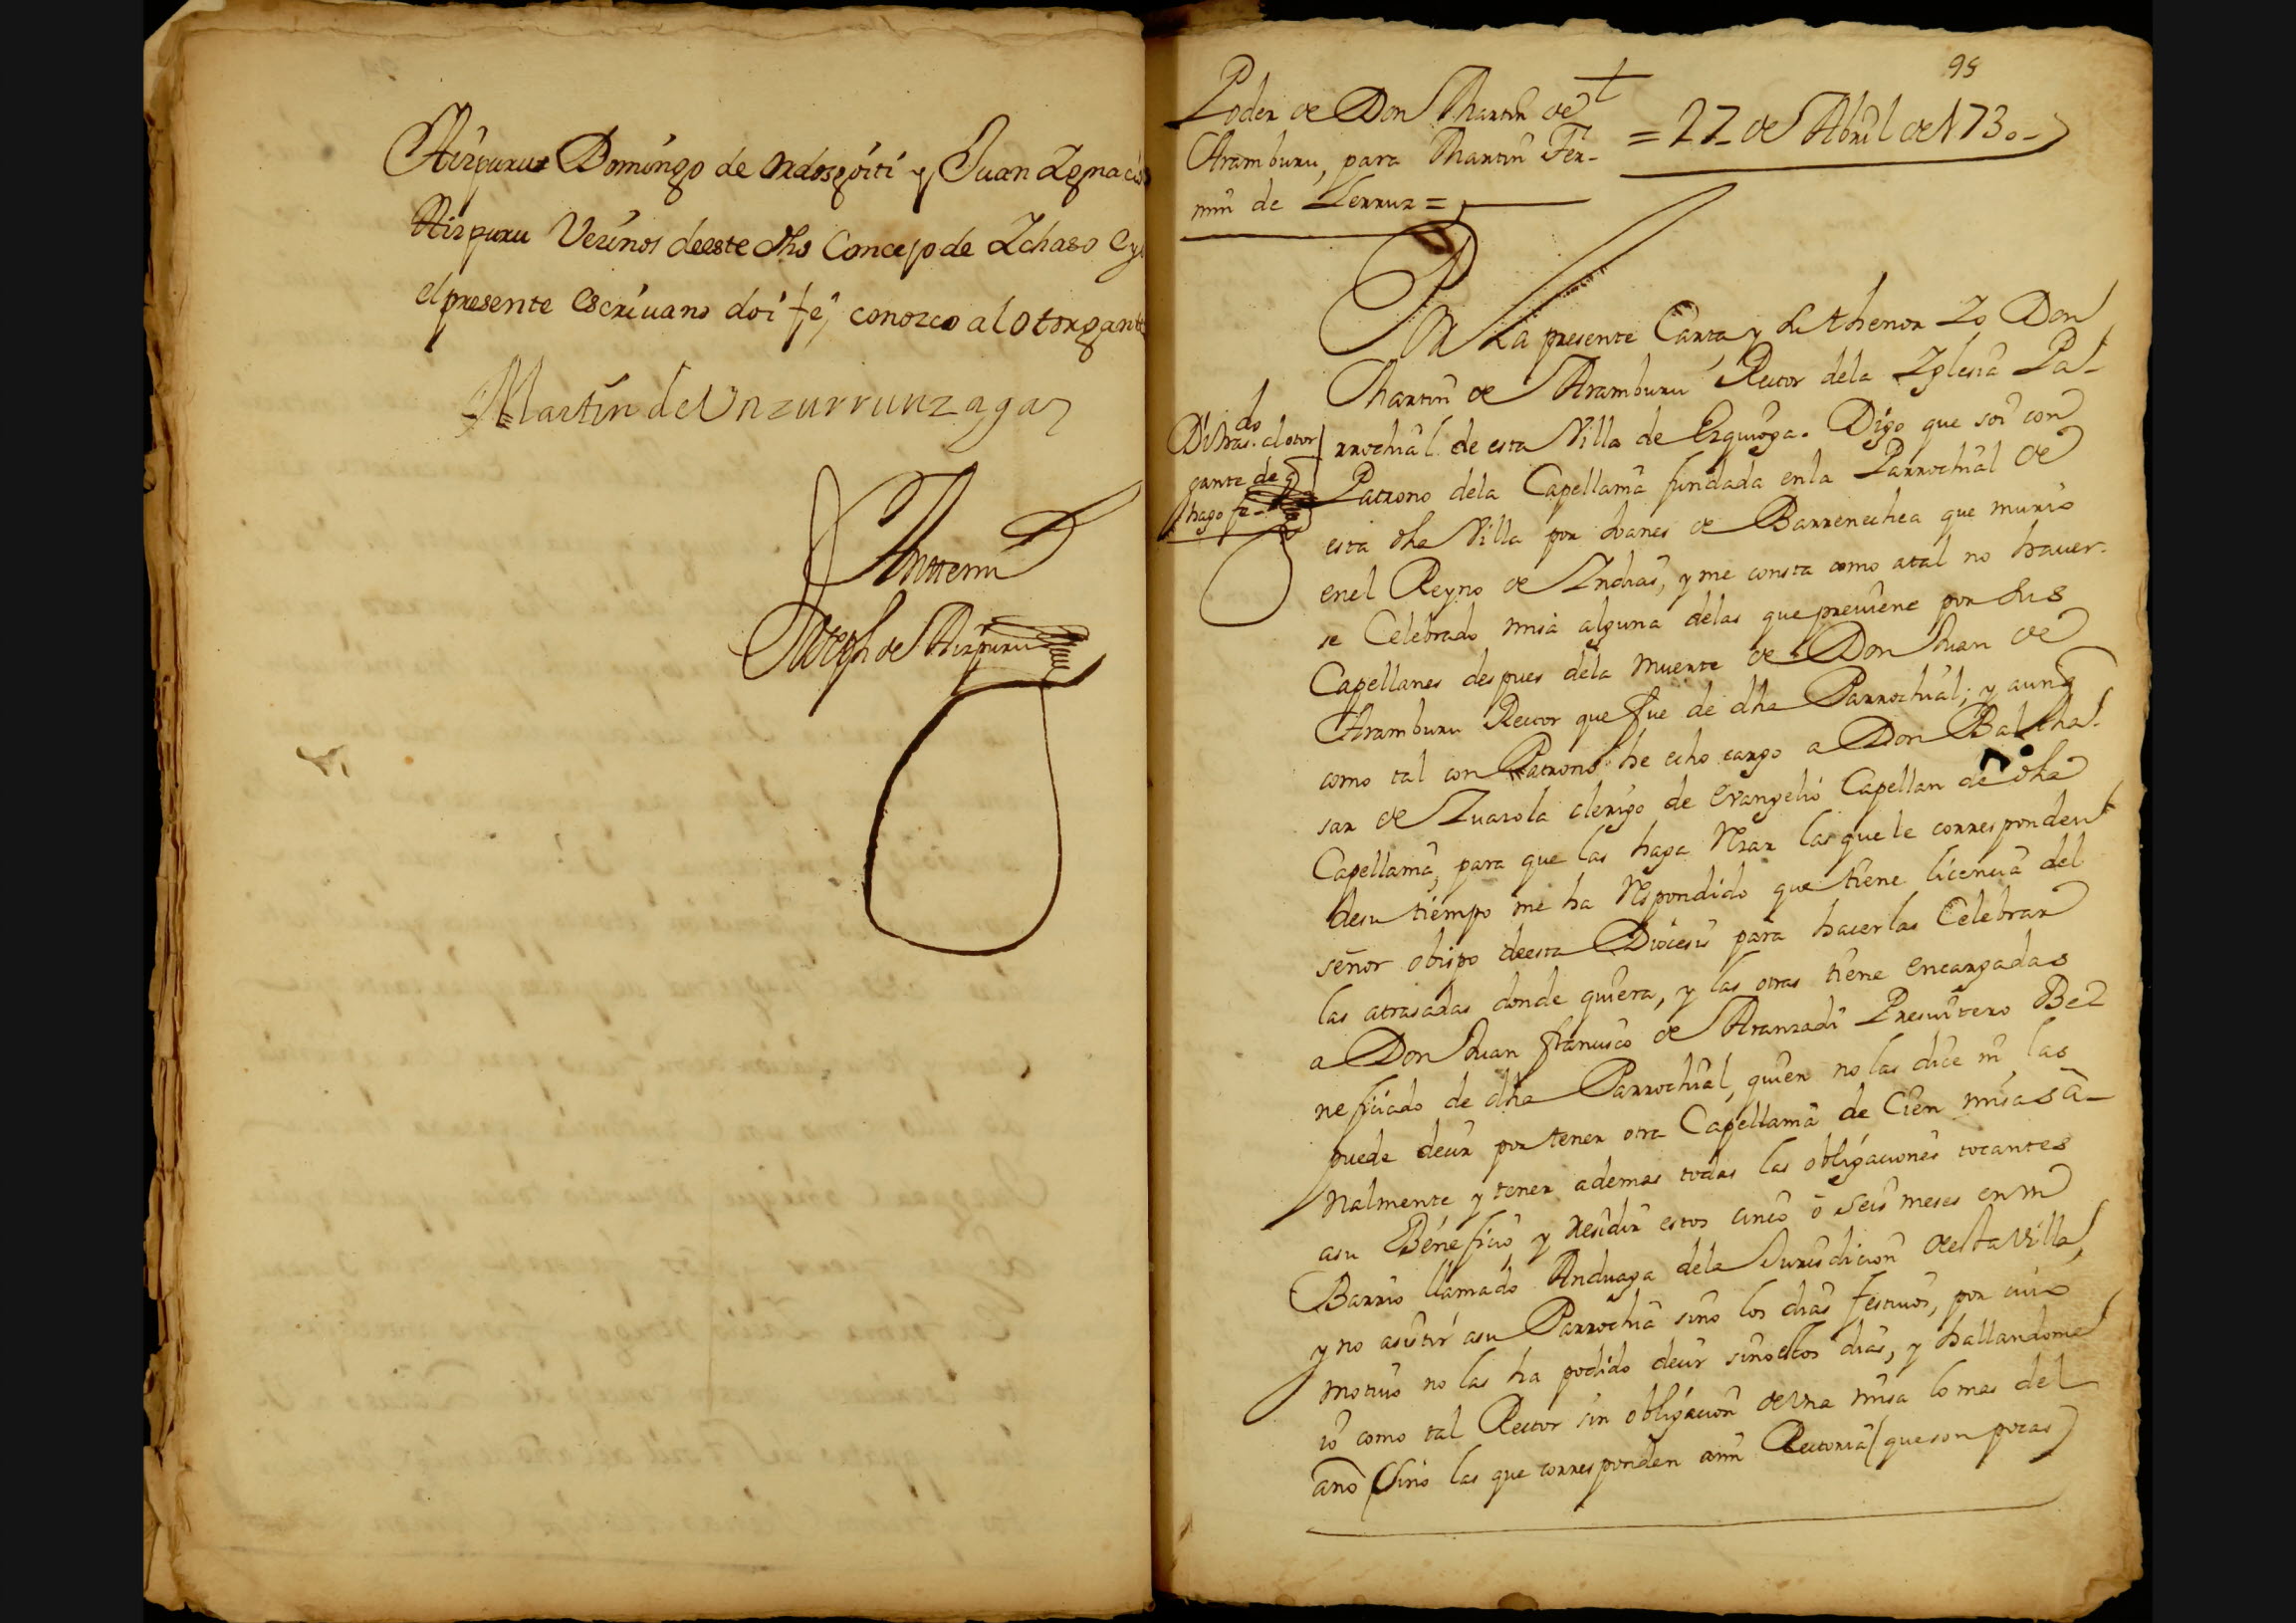 Aizpuru Domingo de Ordosgoiti y Juan Ygnacio
Aizpuru Vezinos deeste dho Concejo de Ychaso e yo
el presente escriuano doi fe, conozco al otorgante
Martin de Unzurrunzaga
Antemi
Joseph de Aizpuru
98
Poder de Don Martin de
Aramburu, para Martin Fer-
min de Lerruz =
= 27 de Abril de 1730
Por La presente Carta y su thenor Yo Don
Martin de Aramburu Rector dela Yglesia Pa-
rrochial de esta Villa de Ezquioga. Digo que soi con
Patrono dela Capellania fundada enla Parrochial de
esta dha Villa por Joanes de Barrenechea que murio
enel Reyno de Yndias, y me consta como atal no hauer-
se Celebrado misa alguna delas que preuiene por sus
Capellanes despues dela muerte de Don Juan de
Aramburu Rector que fue de dha Parrochial; y aunq
como tal con Patrono he echo cargo a Don Baltha-
sar de Zuazola clerigo de evangelio Capellan de dha
Capellania, para que las haga Rezar las que le corresponden
desu tiempo me ha Respondido que tiene licencia del
señor obispo deesta Diocesis para hacerlas Celebrar
las atrasadas donde quiera, y las otras tiene encargadas
a Don Juan francisco de Aranzadi Presuitero Be
neficiado de dha Parrochial, quien no las dice ni las
puede decir por tener otra Capellania de Cien misas a-
nalmente y tener ademas todas las obligaciones tocantes
asu Beneficio, y Residir estos cinco o seis meses en un
Barrio llamado Anduaga dela Jurisdicion desta Villa,
y no asistir asu Parrochia sino los dias festiuos, por cuio
motiuo no las ha podido decir sino estos dias, y hallandome
io como tal Rector sin obligacion de una misa lo mas del
año (sino las que corresponden ami Rectoria (que son pocas)
dho
otor
gante de q
hago fe